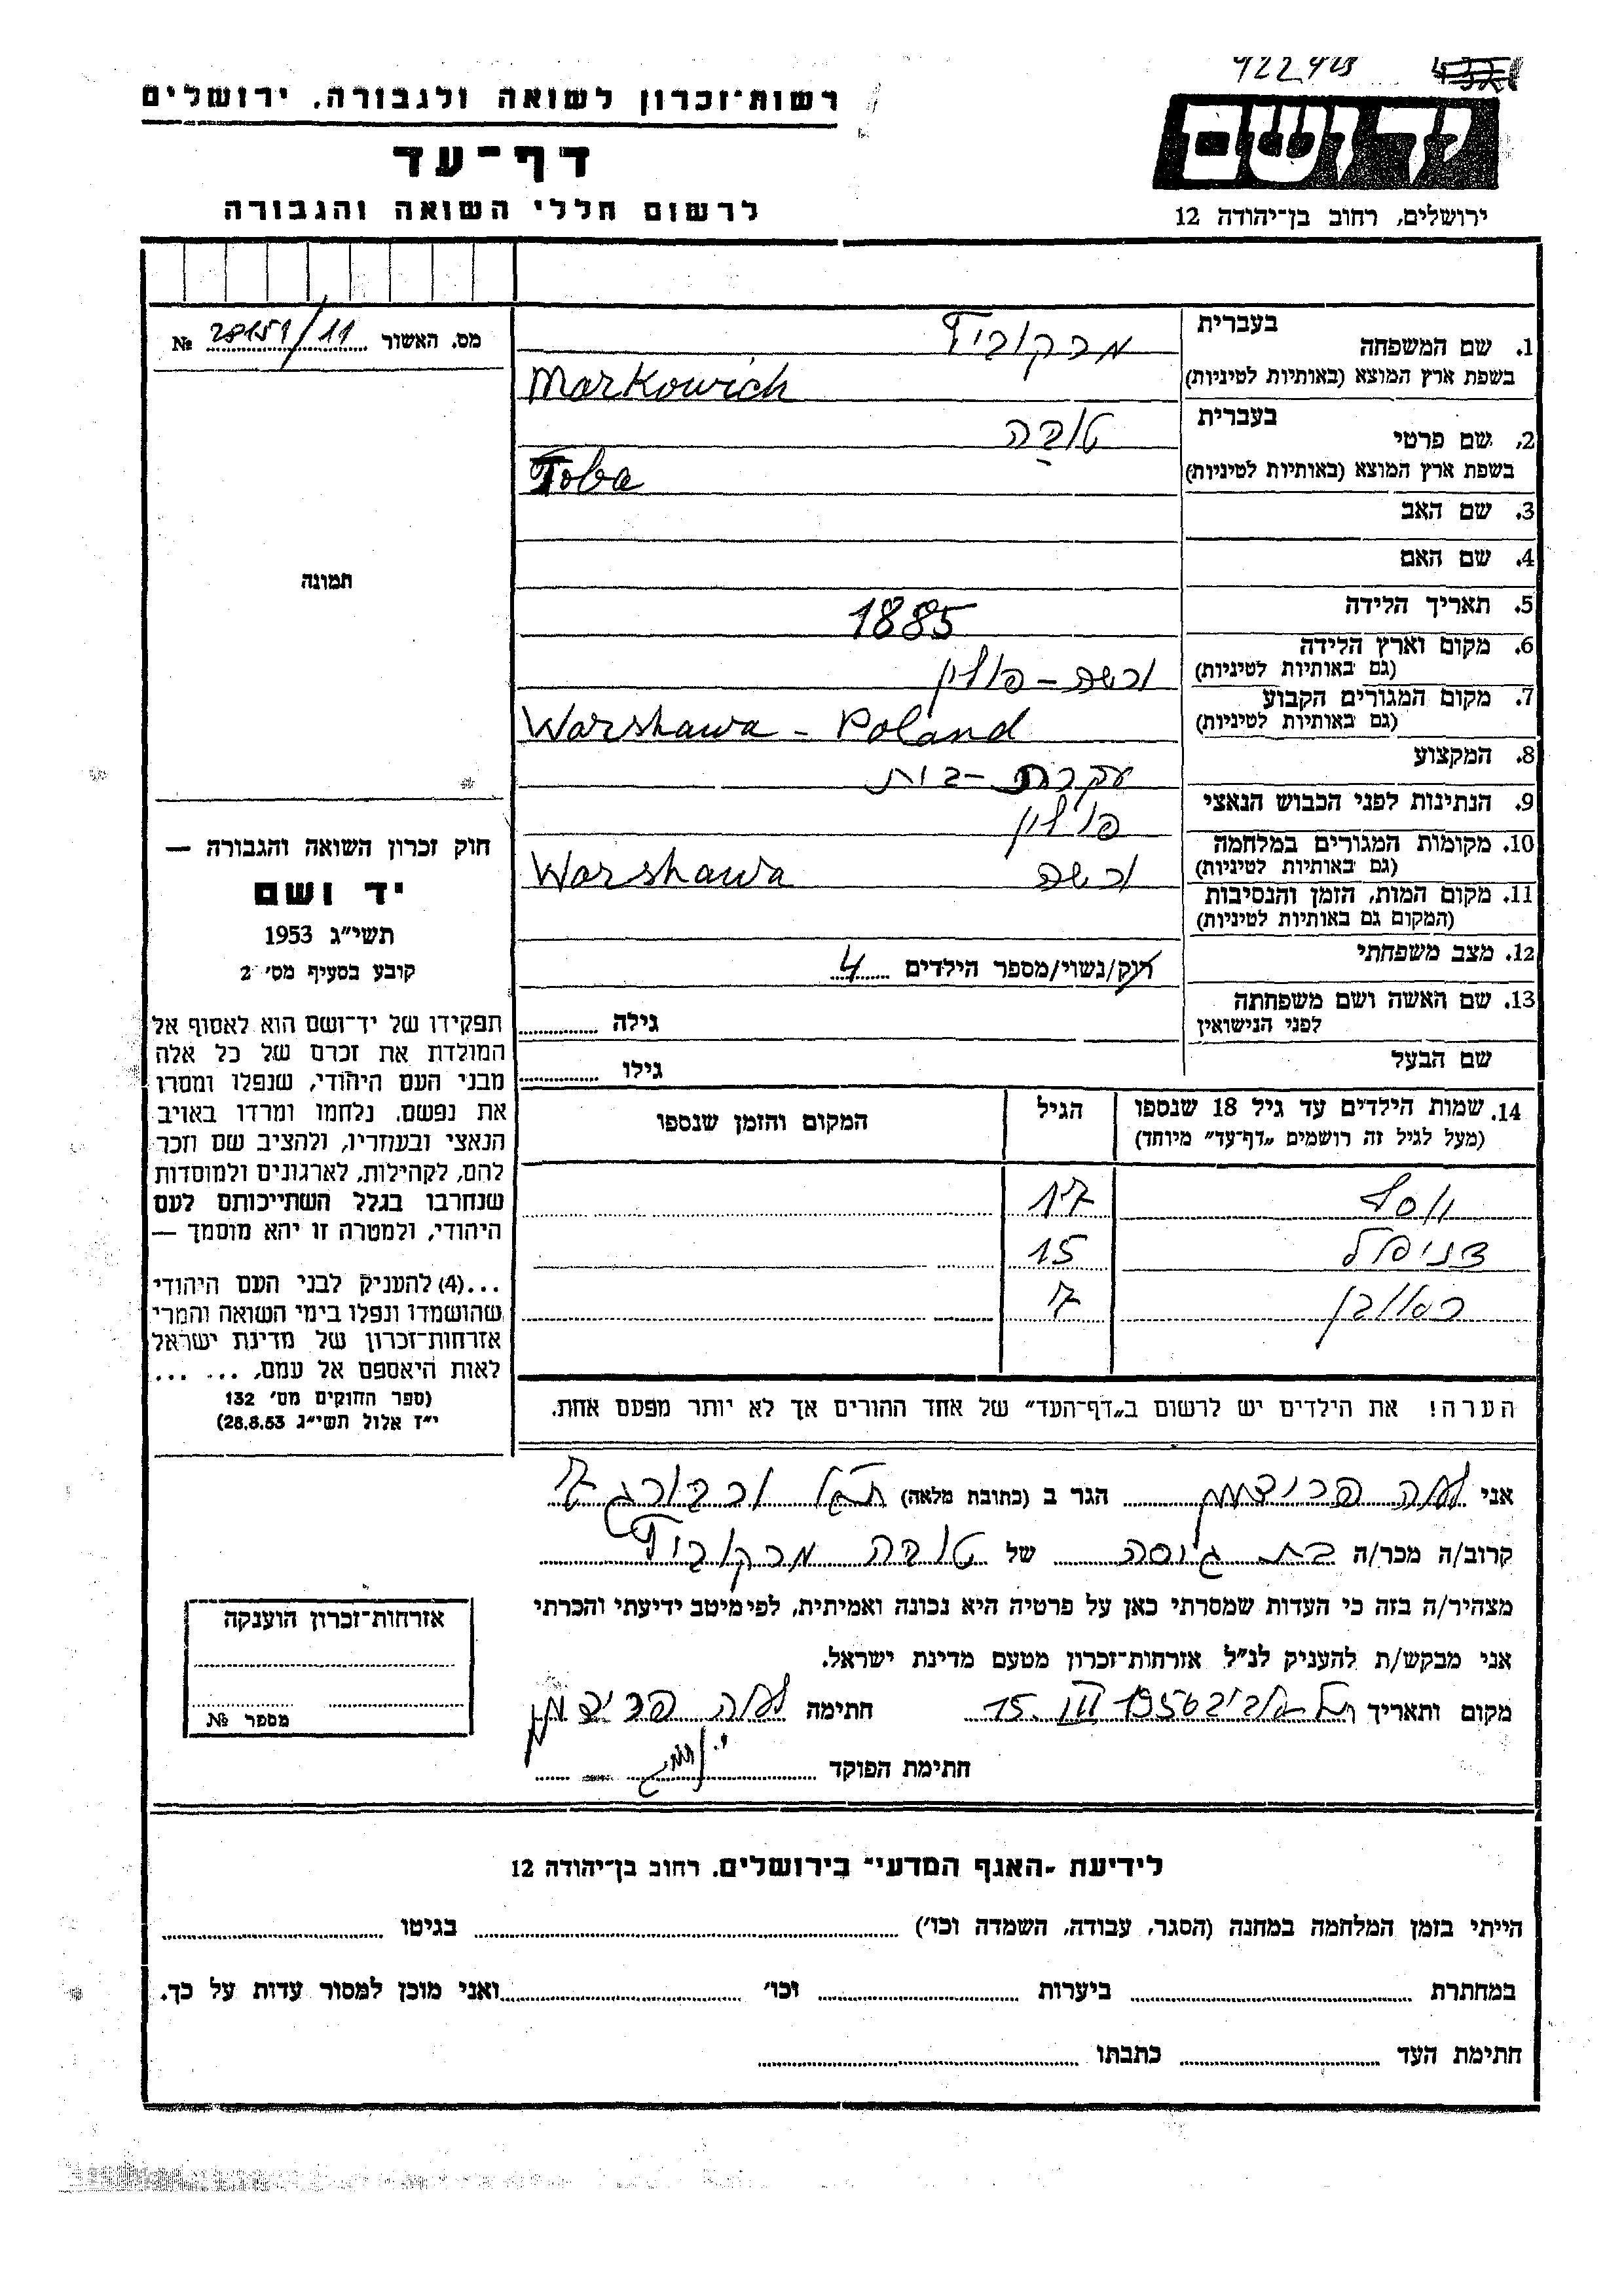 922 423
רשות־זכרון לשואה ולגבורה, ירושלים
דף־עד
לרשום חללי השואה והגבורה
יד ושם
ירושלים, רחוב בן־יהודה 12
מס. האשור 28151/11 №
תמונה
חוק זכרון השואה והגבורה —
יד ושם
תשי״ג 1953
קובע בסעיף מס׳ 2
תפקידו של יד־ושם הוא לאסוף אל
המולדת את זכרם של כל אלה
מבני העם היהודי, שנפלו ומסרו
את נפשם, נלחמו ומרדו באויב
הנאצי ובעוזריו, ולהציב שם וזכר
להם, לקהילות, לארגונים ולמוסדות
שנחרבו בגלל השתייכותם לעם
היהודי, ולמטרה זו יהא מוסמך —
...(4) להעניק לבני העם היהודי
שהושמדו ונפלו בימי השואה והמרי
אזרחות־זכרון של מדינת ישראל
לאות היאספם אל עמם, ... ...
(ספר החוקים מס׳ 132
י״ז אלול תשי״ג 28.8.53)
בעברית
1. שם המשפחה מרקוביץ
בשפת ארץ המוצא (באותיות לטיניות) Markowich
בעברית
2. שם פרטי טובה
בשפת ארץ המוצא (באותיות לטיניות) Toba
3. שם האב
4. שם האם
5. תאריך הלידה 1885
6. מקום וארץ הלידה
(גם באותיות לטיניות) ורשה - פולין
7. מקום המגורים הקבוע
(גם באותיות לטיניות) Warshawa - Poland
8. המקצוע עקרת-בית
9. הנתינות לפני הכבוש הנאצי פולין
10. מקומות המגורים במלחמה
(גם באותיות לטיניות) ורשה Warshawa
11. מקום המות, הזמן והנסיבות
(המקום גם באותיות לטיניות)
12. מצב משפחתי רווק/נשוי/מספר הילדים 4
13. שם האשה ושם משפחתה
לפני הנישואין גילה
שם הבעל גילו
14. שמות הילדים עד גיל 18 שנספו הגיל המקום והזמן שנספו
(מעל לגיל זה רושמים „דף־עד״ מיוחד)
יוסף 17
דניאל 15
ראובן 7
הערה! את הילדים יש לרשום ב„דף־העד״ של אחד ההורים אך לא יותר מפעם אחת.
אני לאה פרידמן הגר ב (כתובת מלאה) ת״א ורבורג 7
קרוב/ה מכר/ה בת גיסה של טובה מרקוביץ
מצהיר/ה בזה כי העדות שמסרתי כאן על פרטיה היא נכונה ואמיתית, לפי מיטב ידיעתי והכרתי
אני מבקש/ת להעניק לנ״ל אזרחות־זכרון מטעם מדינת ישראל.
מקום ותאריך תל-אביב 15. III 1956 חתימה לאה פרידמן
חתימת הפוקד
אזרחות־זכרון הוענקה
מספר №
לידיעת ״האגף המדעי״ בירושלים. רחוב בן־יהודה 12
הייתי בזמן המלחמה במחנה (הסגר, עבודה, השמדה וכו׳) בגיטו
במחתרת ביערות וכו׳ ואני מוכן למסור עדות על כך.
חתימת העד כתבתו